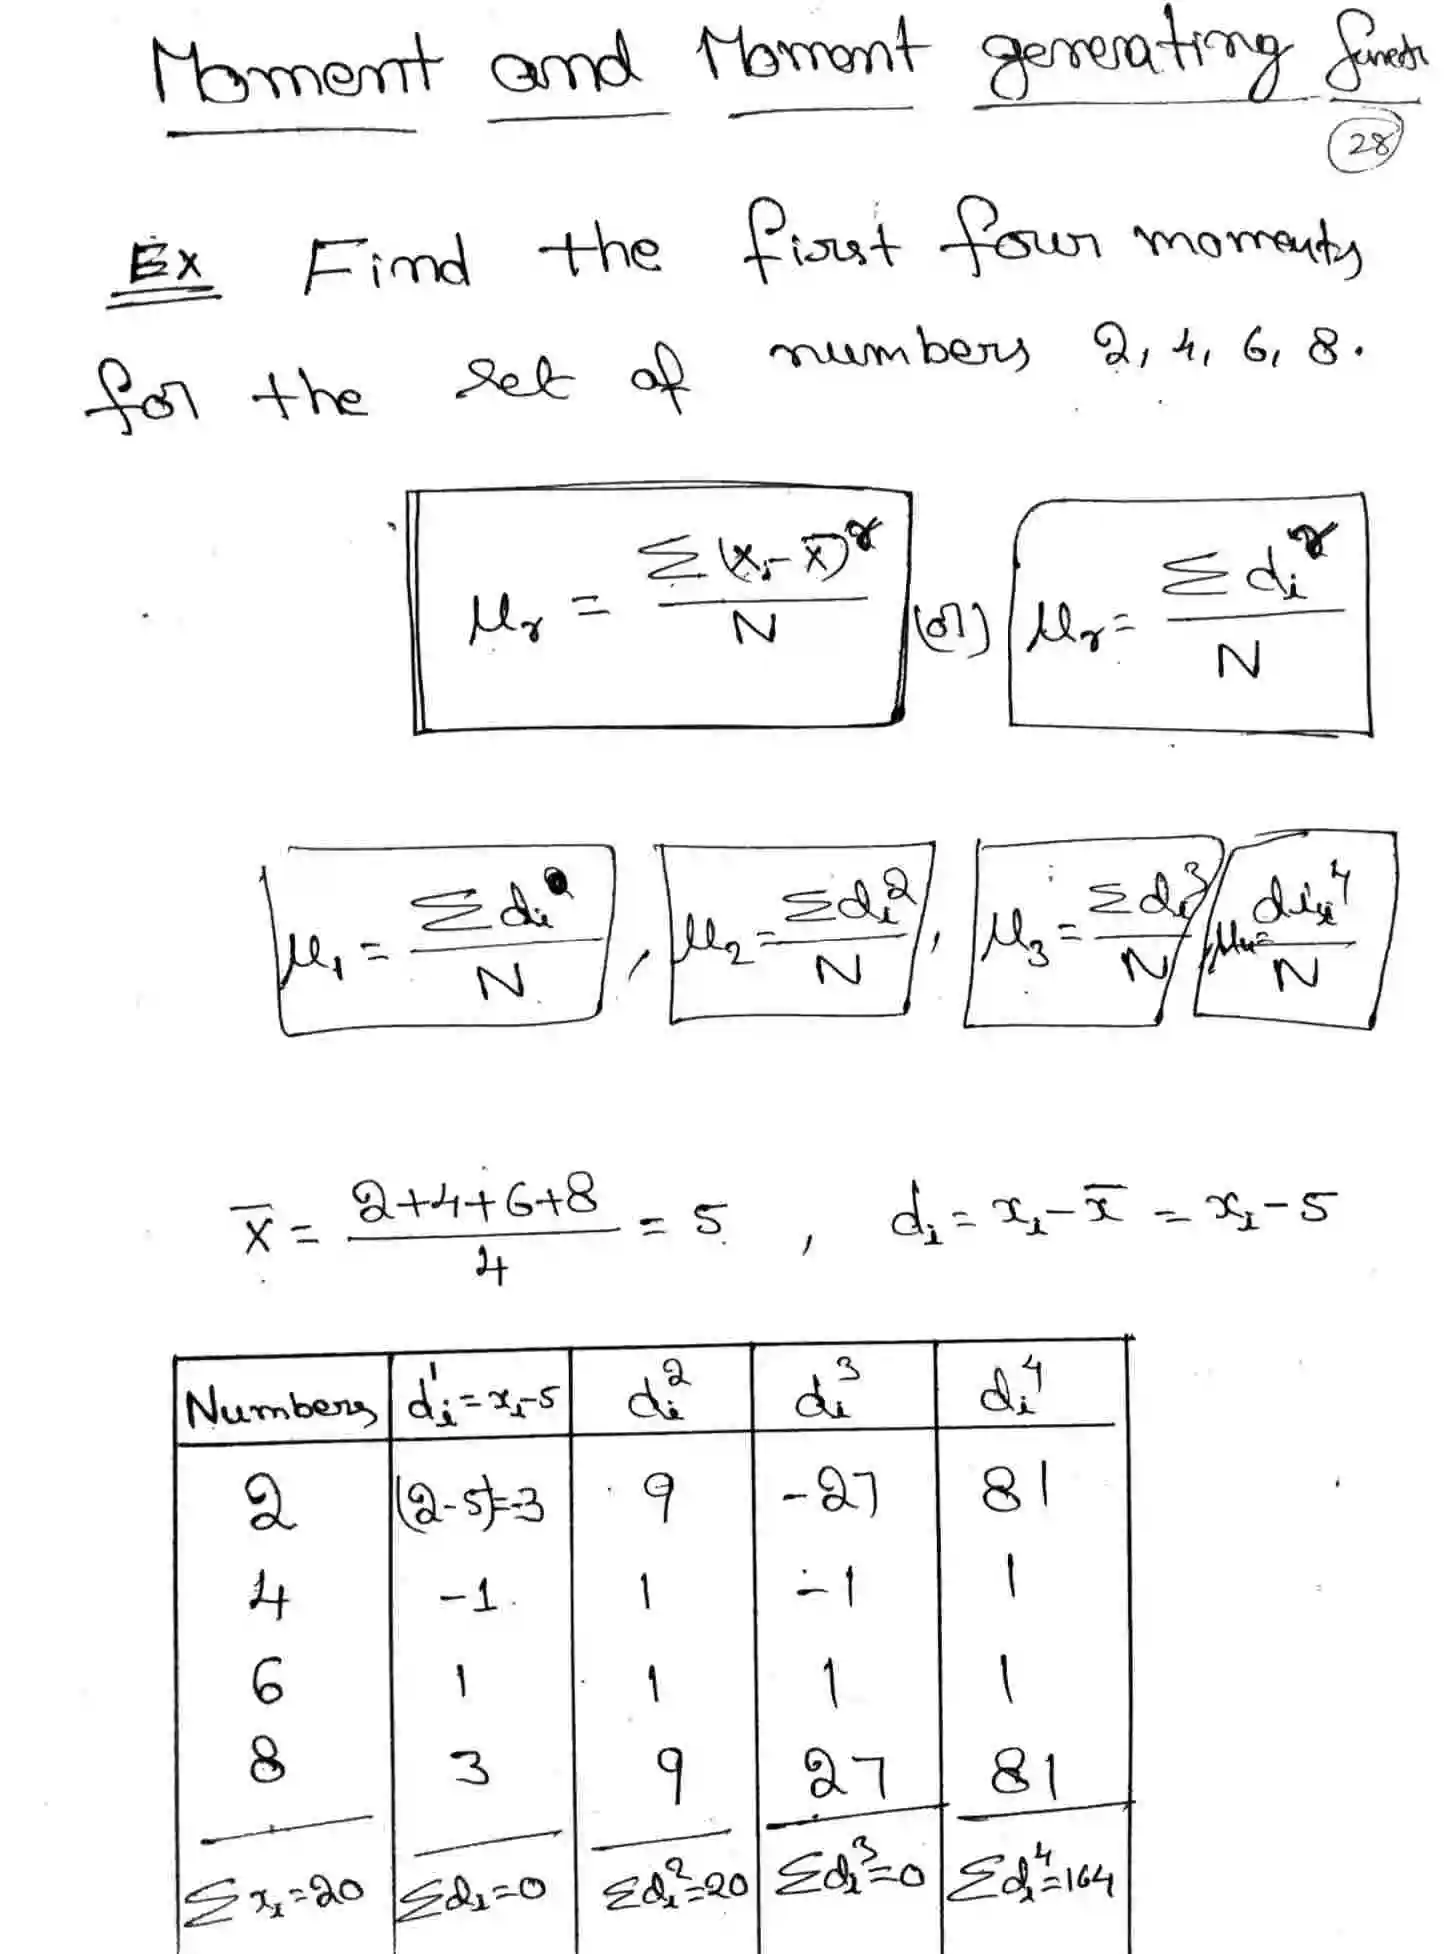 Moment and Moment generating funct
28
Ex Find the first four moments
for the set of numbers 2, 4, 6, 8.
μr = Σ(xi-x̄)^r / N (or) μr = Σdi^r / N
μ1 = Σdi / N , μ2 = Σdi² / N , μ3 = Σdi³ / N μ4 = di⁴ / N
x̄ = 2+4+6+8 / 4 = 5 , di = xi - x̄ = xi - 5
Numbers di = xi-5 di² di³ di⁴
2 (2-5)=-3 9 -27 81
4 -1 1 -1 1
6 1 1 1 1
8 3 9 27 81
Σxi=20 Σdi=0 Σdi²=20 Σdi³=0 Σdi⁴=164